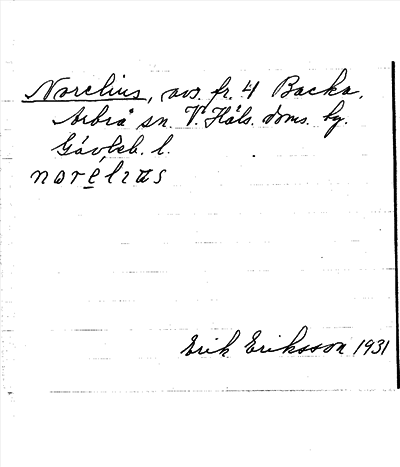 Norelius, avs. fr. 4 Backa,
Arbrå sn. V. Häls. doms. hg.
Gävleb. l.
norélıɷs
Erik Eriksson 1931